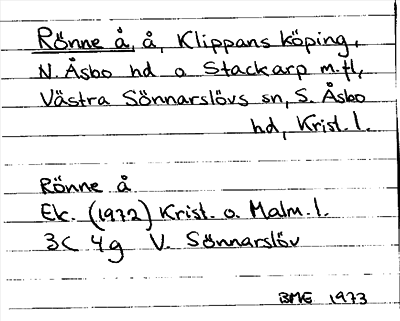 Rönne å, å, Klippans köping,
N. Åsbo hd o Stackarp m.fl,
Västra Sönnarslövs sn, S. Åsbo
hd, Krist. l.
Rönne å
Ek. (1972) Krist. o. Malm. l.
3C 4g V. Sönnarslöv
BME 1973